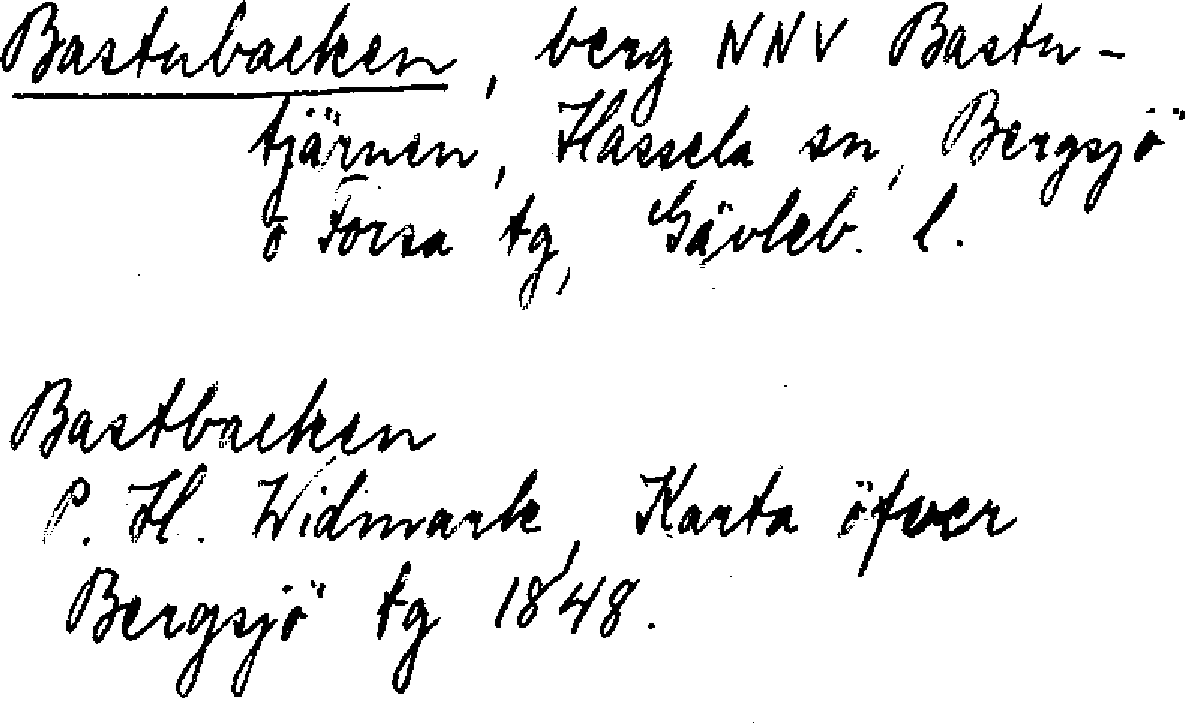 Bastubacken, berg NNV Bastu-
tjärnen, Hassela sn, Bergsjö
o Forsa tg, Gävleb. l.
Bastbacken
P. H. Widmark, Karta öfver
Bergsjö tg 1848.